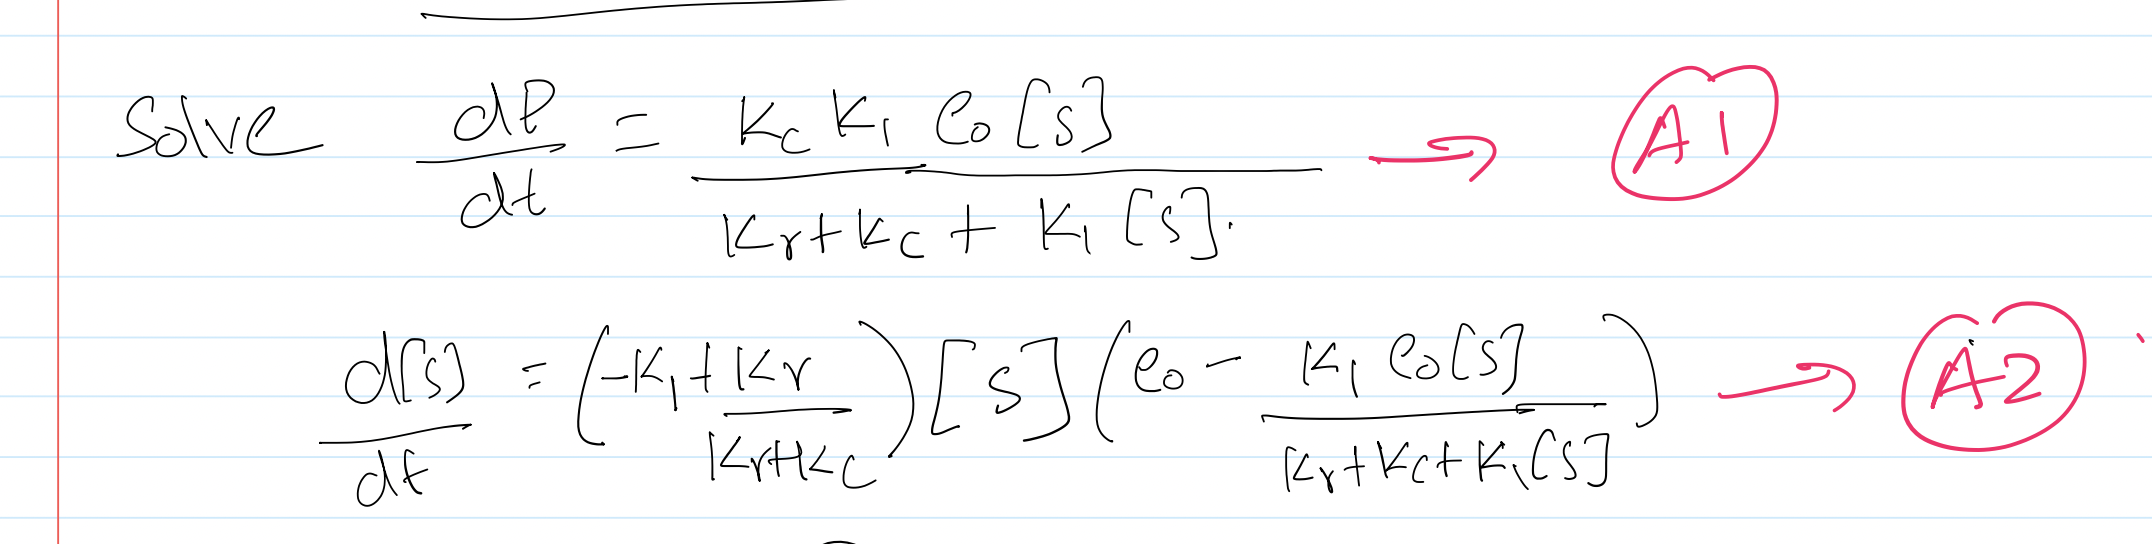 Solve dP/dt = Kc K1 e0[s] / Kr+Kc + K1[s]. → A1
d[s]/dt = (-K1 + Kr / Kr+Kc) [s] (e0 - K1 e0[s] / Kr+Kc+K1[s]) → A2